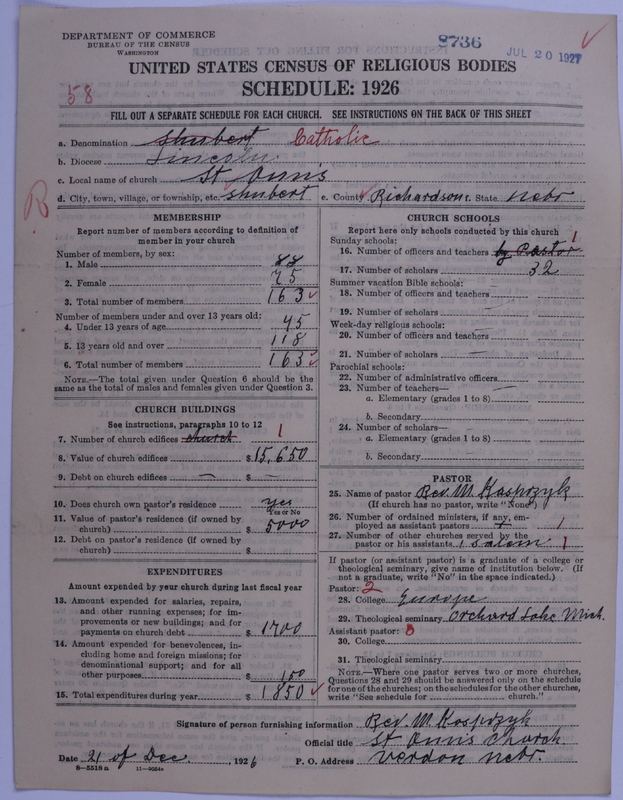 DEPARTMENT OF COMMERCE
BUREAU OF THE CENSUS
WASHINGTON
8736
JUL 20 1927
UNITED STATES CENSUS OF RELIGIOUS BODIES
SCHEDULE: 1926
58
FILL OUT A SEPARATE SCHEDULE FOR EACH CHURCH. SEE INSTRUCTIONS ON THE BACK OF THIS SHEET
a. Denomination Shubert Catholic
b. Diocese Lincoln
c. Local name of church St Anns
d. City, town, village, or township, etc. Shubert e. County Richardson f. State Nebr
MEMBERSHIP
Report number of members according to definition of member in your church
Number of members, by sex:
1. Male 88
2. Female 75
3. Total number of members 163
Number of members under and over 13 years old:
4. Under 13 years of age 45
5. 13 years old and over 118
6. Total number of members 163
NOTE.—The total given under Question 6 should be the same as the total of males and females given under Question 3.
CHURCH BUILDINGS
See instructions, paragraphs 10 to 12
7. Number of church edifices church 1
8. Value of church edifices $ 15,650
9. Debt on church edifices — $ —
10. Does church own pastor's residence yes
Yes or No
11. Value of pastor's residence (if owned by church) $ 5000
12. Debt on pastor's residence (if owned by church) $
EXPENDITURES
Amount expended by your church during last fiscal year
13. Amount expended for salaries, repairs, and other running expenses; for improvements or new buildings; and for payments on church debt $ 1700
14. Amount expended for benevolences, including home and foreign missions; for denominational support; and for all other purposes $ 150
15. Total expenditures during year $ 1850
CHURCH SCHOOLS
Report here only schools conducted by this church
Sunday schools:
16. Number of officers and teachers by Pastor 1
17. Number of scholars 32
Summer vacation Bible schools:
18. Number of officers and teachers
19. Number of scholars —
Week-day religious schools:
20. Number of officers and teachers
21. Number of scholars —
Parochial schools:
22. Number of administrative officers
23. Number of teachers—
a. Elementary (grades 1 to 8)
b. Secondary
24. Number of scholars—
a. Elementary (grades 1 to 8)
b. Secondary
PASTOR
25. Name of pastor Rev. M. Kasprzyk
(If church has no pastor, write "None")
26. Number of ordained ministers, if any, employed as assistant pastors 1
27. Number of other churches served by the pastor or his assistants 1 Salem 1
If pastor (or assistant pastor) is a graduate of a college or theological seminary, give name of institution below. (If not a graduate, write "No" in the space indicated.)
Pastor: 2
28. College Europe
29. Theological seminary Orchard Lake Mich.
Assistant pastor:
30. College
31. Theological seminary
NOTE.—Where one pastor serves two or more churches, Questions 28 and 29 should be answered only on the schedule for one of the churches; on the schedules for the other churches, write "See schedule for ________ church."
Signature of person furnishing information Rev. M. Kasprzyk
Official title St Anns Church
Date 21 of Dec., 1926 P. O. Address Verdon Nebr.
8—5518 a 11—9034